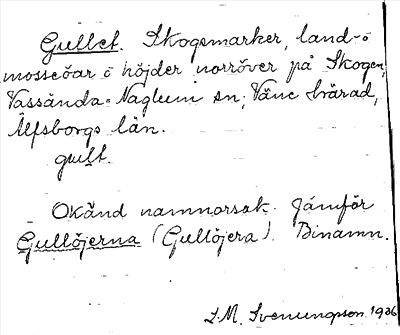 Gullet. Skogsmarker, land- o
mosseöar o höjder norröver på Skogen,
Vassända-Naglum sn, Väne härad,
Älfsborgs län.
gult.
Okänd namnorsak. Jämför
Gullöjerna (Gullöjera). Binamn.
S.M. Svenungsson 1926